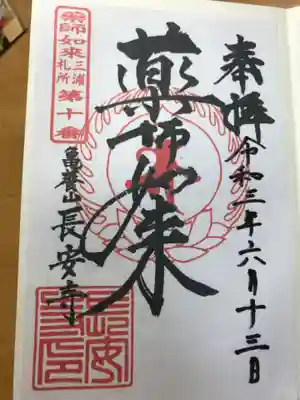 奉拝
令和三年六月十三日
薬師如来
薬師如来三浦札所第十番
亀養山長安寺